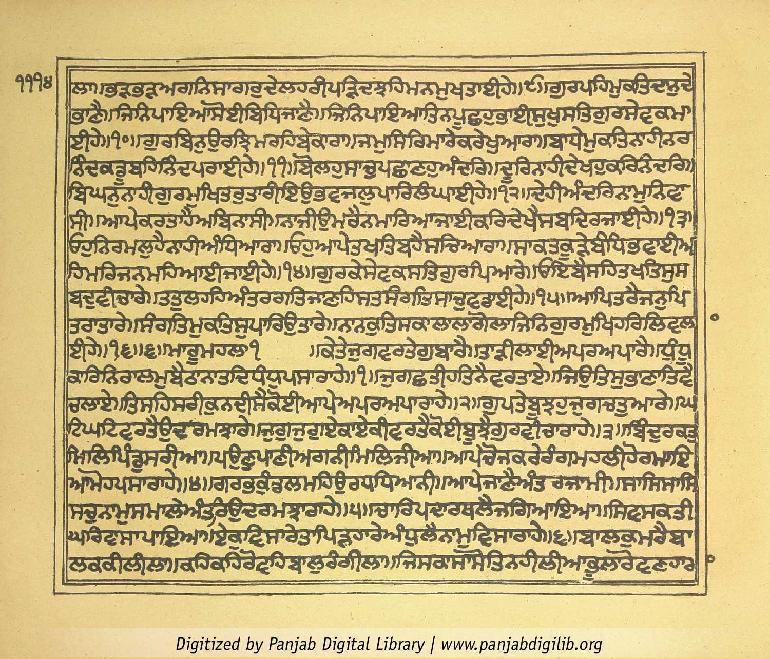 ੧੧੧੪
ਲਾ॥ਭੜਭੜਅਗਨਿਸਾਗਰੁਦੇਲਹਰੀਪੜਿਦਝਹਿਮਨਮੁਖਤਾਈਹੇ॥੯॥ਗੁਰਪਹਿਮੁਕਤਿਦਾਨੁਦੇ
ਭਾਣੈ॥ਜਿਨਿਪਾਇਆਸੋਈਬਿਧਿਜਾਣੈ॥ਜਿਨਿਪਾਇਆਤਿਨਪੂਛਹੁਭਾਈਸੁਖੁਸਤਿਗੁਰਸੇਵਕਮਾ
ਈਹੇ॥੧੦॥ਗੁਰਬਿਨੁਉਰਝਿਮਰਹਿਬੇਕਾਰਾ॥ਜਮੁਸਿਰਿਮਾਰੇਕਰੇਖੁਆਰਾ॥ਬਾਧੇਮੁਕਤਿਨਾਹੀਨਰ
ਨਿੰਦਕਡੂਬਹਿਨਿੰਦਪਰਾਈਹੇ॥੧੧॥ਬੋਲਹੁਸਾਚੁਪਛਾਣਹੁਅੰਦਰਿ॥ਦੂਰਿਨਾਹੀਦੇਖਹੁਕਰਿਨੰਦਰਿ॥
ਬਿਘਨੁਨਾਹੀਗੁਰਮੁਖਿਤਰੁਤਾਰੀਇਉਭਵਜਲੁਪਾਰਿਲੰਘਾਈਹੇ॥੧੨॥ਦੇਹੀਅੰਦਰਿਨਾਮੁਨਿਵਾ
ਸੀ॥ਆਪੇਕਰਤਾਹੈਅਬਿਨਾਸੀ॥ਨਾਜੀਉਮਰੈਨਮਾਰਿਆਜਾਈਕਰਿਦੇਖੈਸਬਦਿਰਜਾਈਹੇ॥੧੩॥
ਓਹੁਨਿਰਮਲੁਹੈਨਾਹੀਅੰਧਿਆਰਾ॥ਓਹੁਆਪੇਤਖਤਿਬਹੈਸਚਿਆਰਾ॥ਸਾਕਤਕੂੜੇਬੰਧਿਭਵਾਈਅ
ਹਿਮਰਿਜਨਮਹਿਆਈਜਾਈਹੇ॥੧੪॥ਗੁਰਕੇਸੇਵਕਸਤਿਗੁਰਪਿਆਰੇ॥ਓਇਬੈਸਹਿਤਖਤਿਸੁਸ
ਬਦੁਵੀਚਾਰੇ॥ਤਤੁਲਹਹਿਅੰਤਰਗਤਿਜਾਣਹਿਸਤਸੰਗਤਿਸਾਚੁਵਡਾਈਹੇ॥੧੫॥ਆਪਿਤਰੈਜਨੁਪਿ
ਤਰਾਤਾਰੇ॥ਸੰਗਤਿਮੁਕਤਿਸੁਪਾਰਿਉਤਾਰੇ॥ਨਾਨਕੁਤਿਸਕਾਲਾਲਾਗੋਲਾਜਿਨਿਗੁਰਮੁਖਿਹਰਿਲਿਵਲਾ
ਈਹੇ॥੧੬॥੬॥ਮਾਰੂਮਹਲਾ੧ ॥ਕੇਤੇਜੁਗਵਰਤੇਗੁਬਾਰੈ॥ਤਾੜੀਲਾਈਅਪਰਅਪਾਰੈ॥ਧੁੰਧੂ
ਕਾਰਿਨਿਰਾਲਮੁਬੈਠਾਨਾਤਦਿਧੰਧੁਪਸਾਰਾਹੇ॥੧॥ਜੁਗਛਤੀਹਤਿਨੈਵਰਤਾਏ॥ਜਿਉਤਿਸੁਭਾਣਾਤਿਵੈ
ਚਲਾਏ॥ਤਿਸਹਿਸਰੀਕੁਨਦੀਸੈਕੋਈਆਪੇਅਪਰਅਪਾਰਾਹੇ॥੨॥ਗੁਪਤੇਬੂਝਹੁਜੁਗਚਤੁਆਰੇ॥ਘ
ਟਿਘਟਿਵਰਤੈਉਦਰਮਝਾਰੇ॥ਜੁਗੁਜੁਗੁਏਕਾਏਕੀਵਰਤੈਕੋਈਬੂਝੈਗੁਰਵੀਚਾਰਾਹੇ॥੩॥ਬਿੰਦੁਰਕਤੁ
ਮਿਲਿਪਿੰਡੁਸਰੀਆ॥ਪਉਣੁਪਾਣੀਅਗਨੀਮਿਲਿਜੀਆ॥ਆਪੇਚੋਜਕਰੇਰੰਗਮਹਲੀਹੋਰਮਾਇ
ਆਮੋਹਪਸਾਰਾਹੇ॥੪॥ਗਰਭਕੁੰਡਲਮਹਿਉਰਧਧਿਆਨੀ॥ਆਪੇਜਾਣੈਅੰਤਰਜਾਮੀ॥ਸਾਸਿਸਾਸਿ
ਸਚੁਨਾਮੁਸਮਾਲੇਅੰਤਰਿਉਦਰਮਝਾਰਾਹੇ॥੫॥ਚਾਰਿਪਦਾਰਥਲੈਜਗਿਆਇਆ॥ਸਿਵਸਕਤੀ
ਘਰਿਵਾਸਾਪਾਇਆ॥ਏਕੁਵਿਸਾਰੇਤਾਪਿੜਹਾਰੇਅੰਧੁਲੈਨਾਮੁਵਿਸਾਰਾਹੇ॥੬॥ਬਾਲਕੁਮਰੈਬਾ
ਲਕਕੀਲੀਲਾ॥ਕਹਿਕਹਿਰੋਵਹਿਬਾਲੁਰੰਗੀਲਾ॥ਜਿਸਕਾਸਾਸੋਤਿਨਹੀਲੀਆਭੂਲਾਰੋਵਣਹਾਰਾ
Digitized by Panjab Digital Library | www.panjabdigilib.org